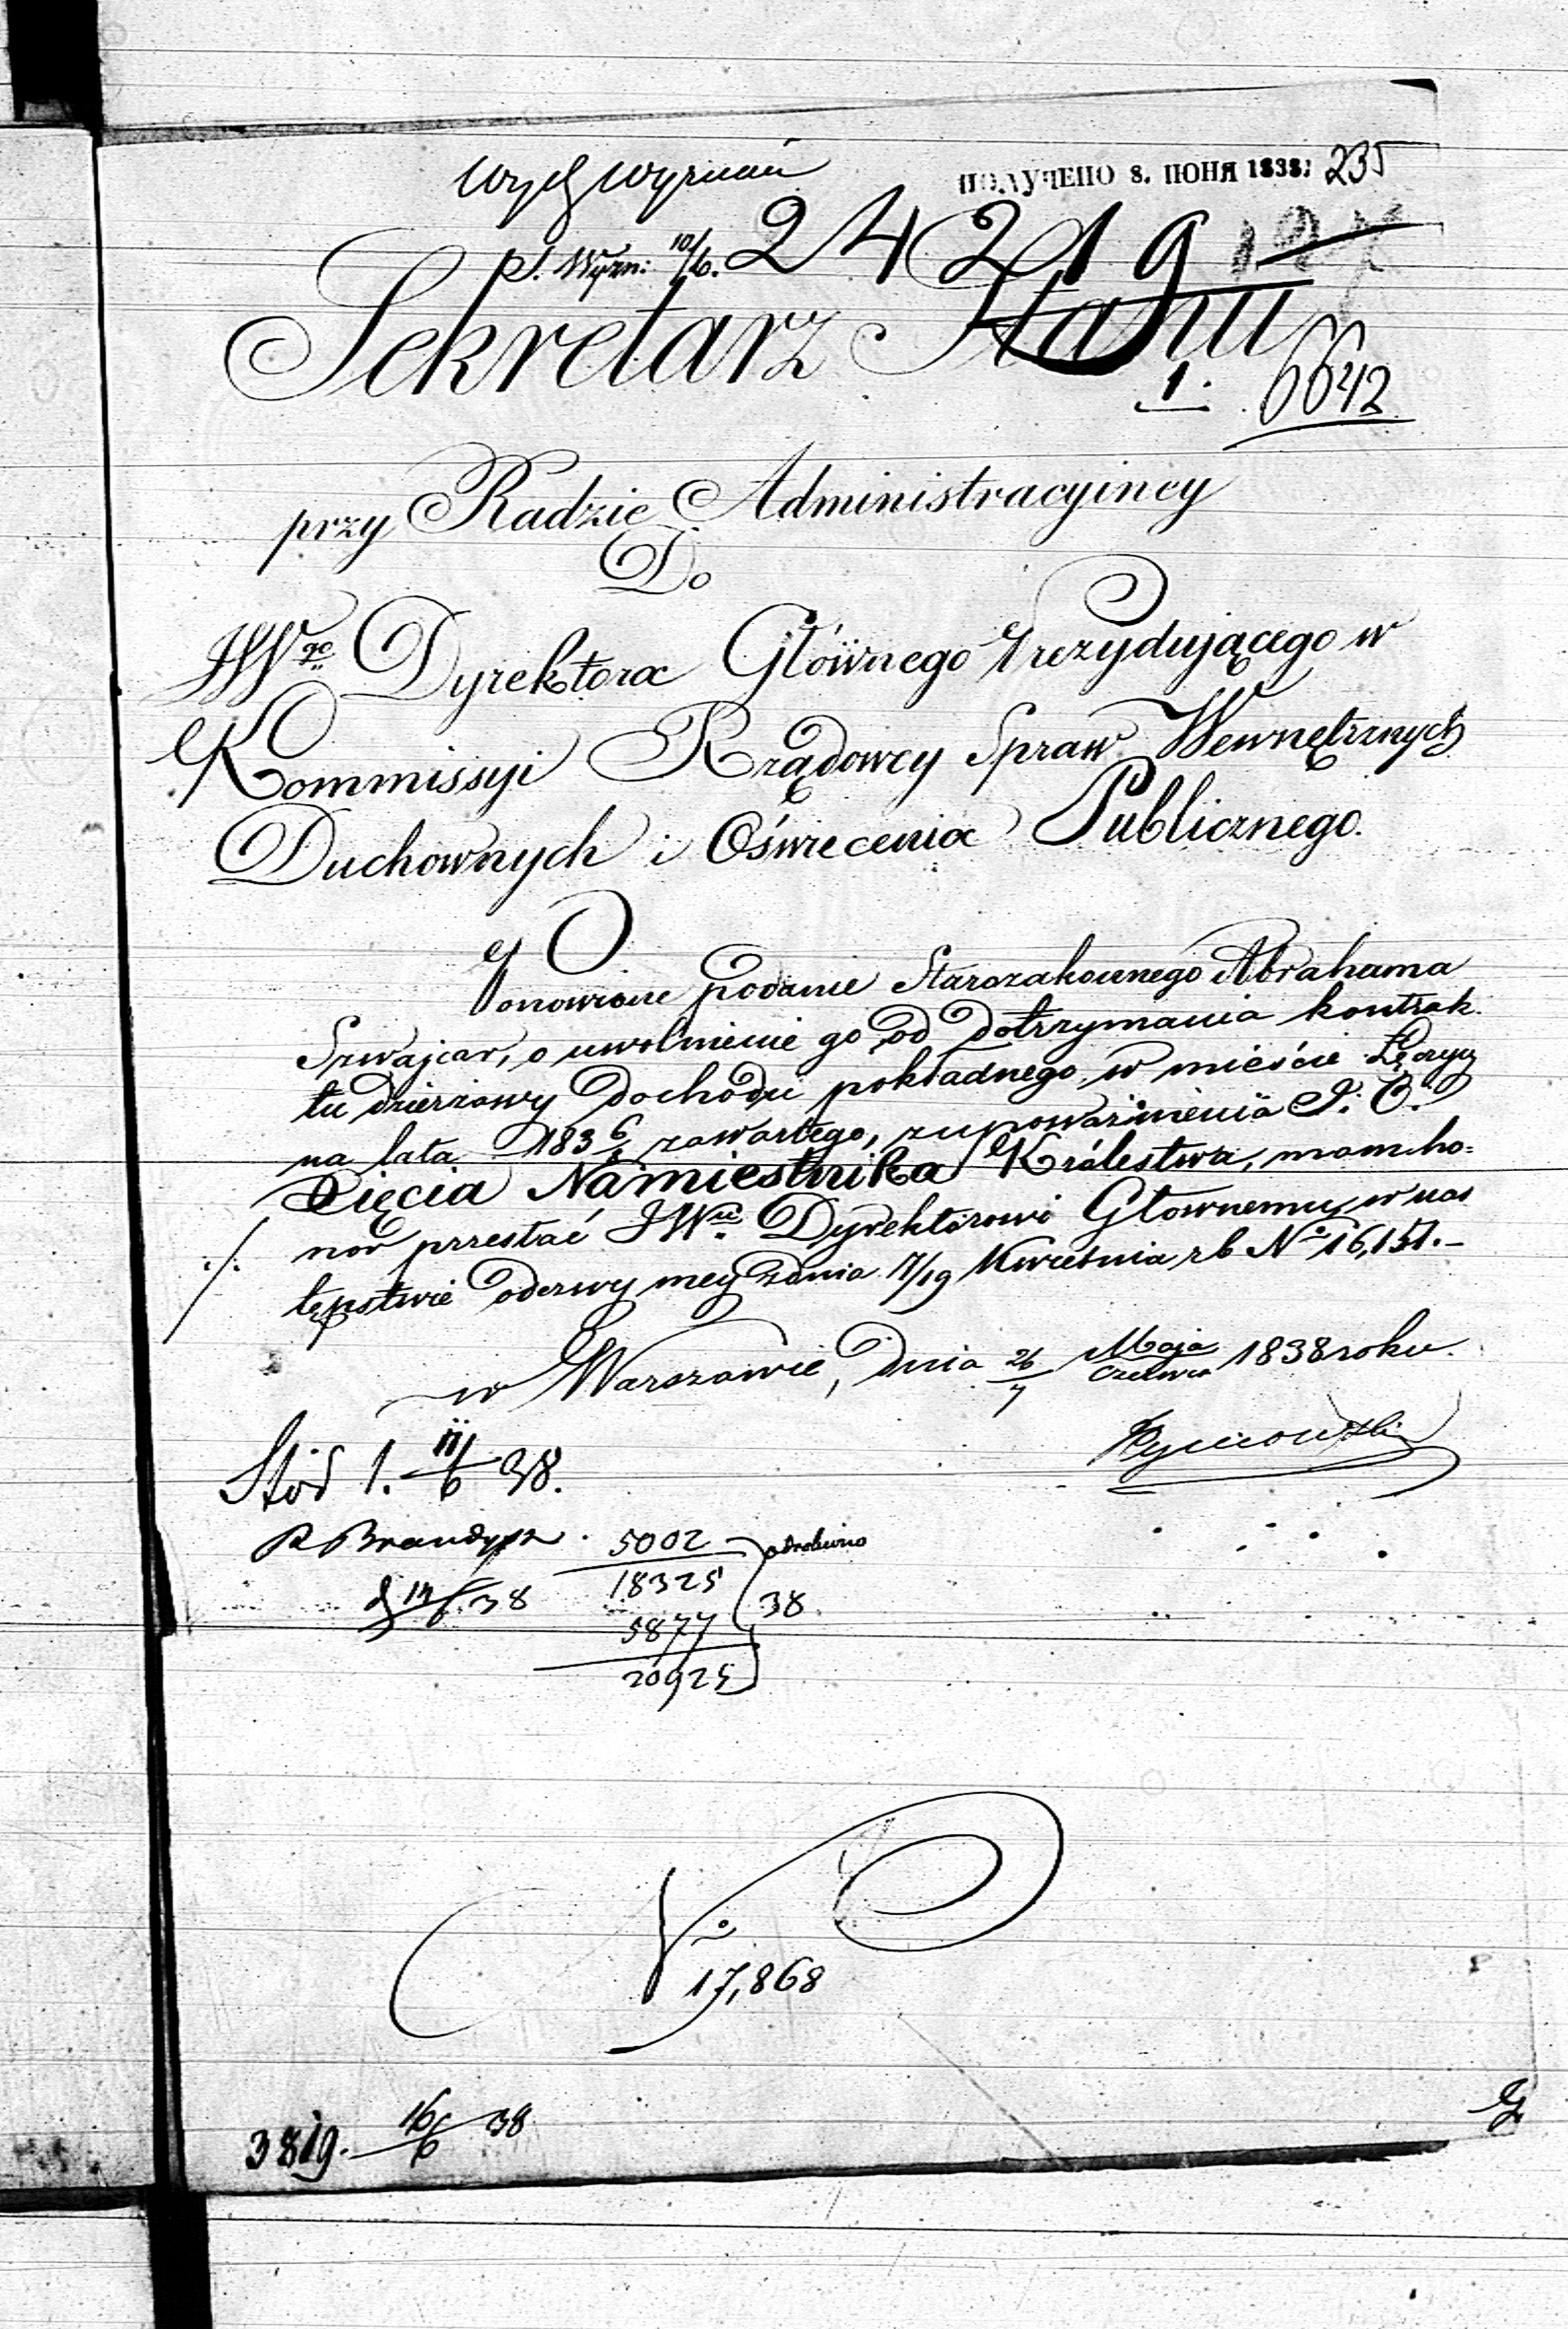 Wyd Wyznań
ПОЛУЧЕНО 8. ІЮНЯ 1838. 235
S. Wyzn: 10/6. 24219
Sekretarz Stanu
1. 6642
przy Radzie Administracyiney
Do
JWgo Dyrektora Głównego Prezydującego w
Kommissyi Rządowey Spraw Wewnętrznych
Duchownych i Oświecenia Publicznego.
Ponowione podanie Starozakonnego Abrahama
Szwajcar, o uwolnienie go od dotrzymania kontrak-
tu dzierzawy dochodu pokładnego w mieście Łęczycy
na lata 1836/8 zawartego, z upoważnienia J. O.
Xięcia Namiestnika Królestwa, mam ho-
nor przesłać JWu Dyrektorowi Głownemu w nas
./. tępstwie odezwy mey z dnia 7/19 Kwietnia rb No 16,151.-
w Warszawie, dnia 26/7 Maja/Czerwca 1838 roku.
Stód 1. 11/6 38.
R Brandysz 5002 odrobiono
d 14/6 38 18325
38
5877
20925
No 17,868
3819. 16/6 38